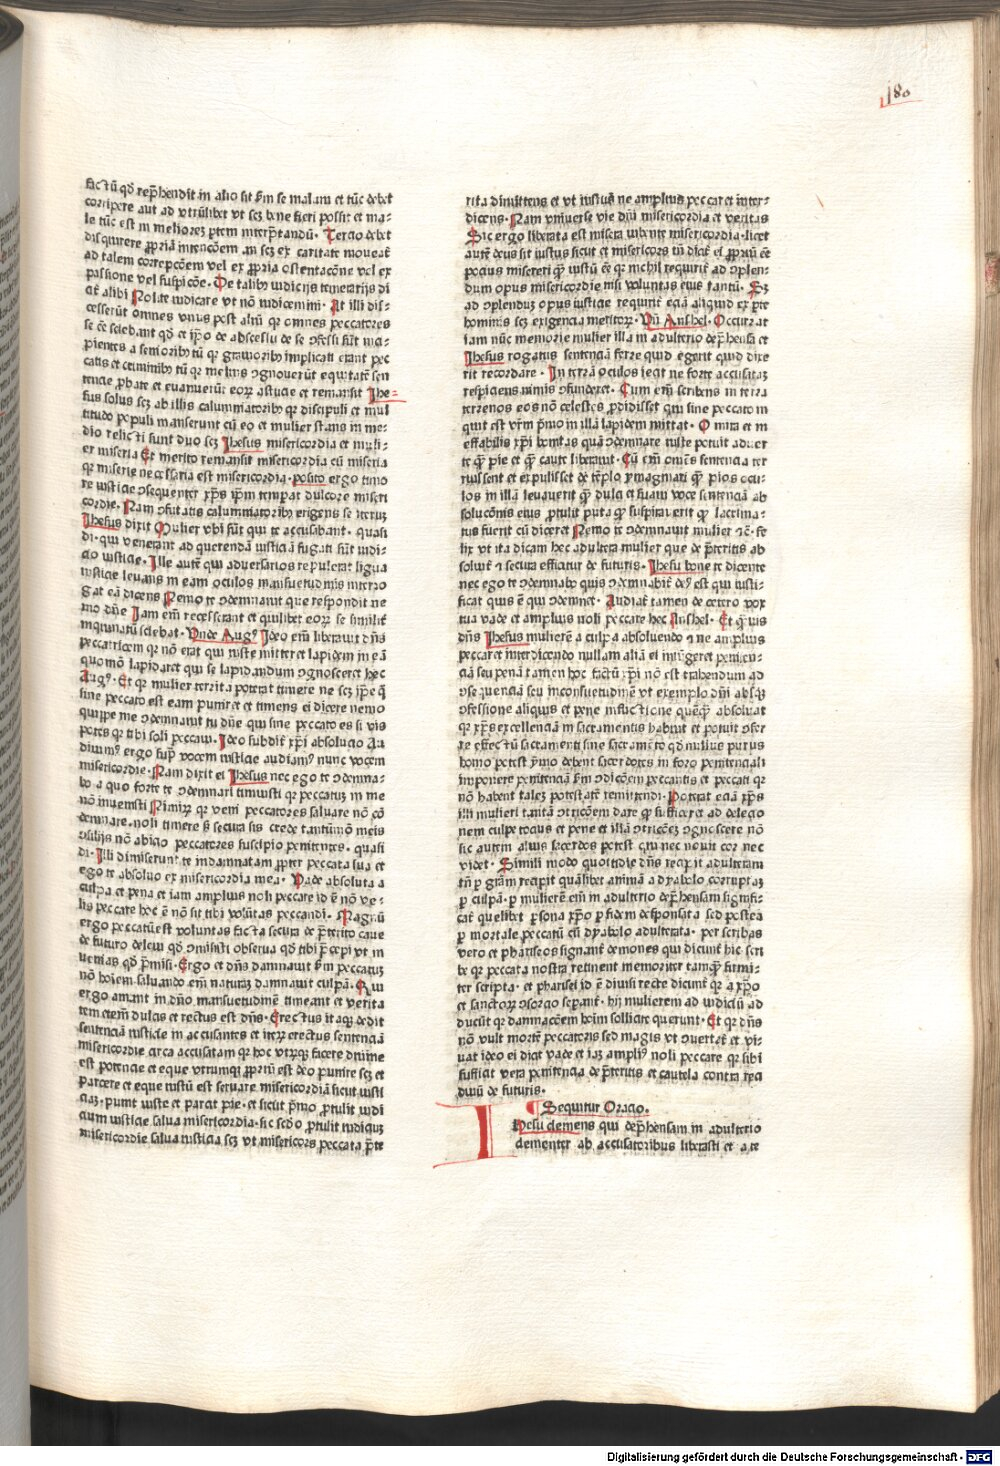 180
factū qď rep̄hendit in alio sit ẜm se malum et tūc debet
corripere aut ad vtrūlibet vt scꝫ bene fieri possit et ma-
le tūc est in melioreꝫ ptem interp̄tandū. Tercio debet
disquirere ꝓpriā intencōem an scꝫ ex caritate moueat̄
ad talem correpcōem vel ex ꝓpria ostentacōne vel ex
passione vel suspicōe. De talibꝰ iudicijs temerarijs di
cit̄ alibi Nolite iudicare vt nō iudicemini. At illi dis-
cesserūt omnes vnus post aliū qꝛ omnes peccatores
se eē sciebant
pientes a senioribꝰ tū qꝛ grauioribꝰ implicati erant pec
catis et criminibꝰ tū qꝛ melius ꝯgnouerūt equitatē sen
tencie ꝓbate et euanuerūt eoꝝ astucie et remansit Jhe-
sus solus scꝫ ab illis calumniatoribꝰ qꝛ discipuli et mul
titudo populi manserunt cū eo et mulier stans in me-
dio relicti sunt duo scꝫ Jhesus misericordia et muli-
er miseria Et merito remansit misericordia cū miseria
qꝛ miserie necessaria est misericordia. posito ergo timo
re iusticie ꝯsequenter xp̄s ip̄m temperat dulcore miseri
cordie. Nam ꝯfutatis calumniatoribꝰ erigens se iterum
Jhesus dixit Mulier vbi sūt qui te accusabant. quasi
di. qui venerant ad querendā iusticiā fugati sūt iudi-
cio iusticie. Ille autē qui aduersarios repulerat ligua
iusticie leuans in eam oculos mansuetudinis interro
gat eā dicens Nemo te ꝯdemnauit que respondit ne
mo dn̄e Iam em̄ recesserant et quilibet eoꝝ se similit̄
inquinatū sciebat. Vnde Augꝰ Ideo em̄ liberauit dn̄s
peccatricem qꝛ nō erat qui iuste mitteret lapidem in eā
quomō lapidaret qui se lapidandum ꝯgnosceret hec
Augꝰ. Et qꝛ mulier territa poterat timere ne scꝫ ip̄e q̄
sine peccato est eam puniret et timens ei dicere nemo
quippe me ꝯdemnauit tu dn̄e qui sine peccato es si vis
potes qꝛ tibi soli peccaui. Ideo subdit̄ xp̄i absolucio Au
diuimꝰ ergo sup̄ vocem iusticie audiamꝰ nunc vocem
misericordie. Nam dixit ei Jhesus nec ego te ꝯdemna-
bo a quo forte te ꝯdemnari timuisti qꝛ peccatum in me
nō inuenisti Nimirꝝ qꝛ veni peccatores saluare nō cō
demnare. noli timere ẜ secura sis crede tantūmō meis
ꝯsilijs nō abicio peccatores suscipio penitentes. quasi
di. Illi dimiserunt te indamnatam ꝓpter peccata sua et
ego te absoluo ex misericordia mea. Vade absoluta a
culpa et pena et iam amplius noli peccare id ē nō ve-
lis peccare hoc ē nō sit tibi volūtas peccandi. Magnū
ergo peccatū est voluntas facta secura de p̄terito caue
de futuro deleui qď ꝯmisisti obserua qď tibi p̄cepi vt in
uenias qď p̄misi. Ergo et dn̄s damnauit ẜm peccatum
nō hoīem saluando em̄ naturam damnauit culpā. Qui
ergo amant in dn̄o mansuetudinē timeant et verita
tem etem̄ dulcis et rectus est dn̄s. Erectus itaqꝫ dedit
sentenciā iusticie in accusantes et iteꝝ erectus sentenciā
misericordie circa accusatam qꝛ hoc vtrūqꝫ facere diuine
est potencie et eque vtrumqꝫ ꝓpriū est deo punire scꝫ et
parcere et eque iustū est seruare misericordiā sicut iusti
ciaꝫ. punit iuste et parcit pie. et sicut p̄mo ꝓtulit iudi
cium iusticie salua misericordia. sic scd̄o ꝓtulit iudiciuꝫ
misericordie salua iusticia scꝫ vt misericors peccata p̄te
rita dimittens et vt iustus ne amplius peccaret inter-
dicens. Nam vniuerse vie dn̄i misericordia et veritas
Sic ergo liberata est misera iubente misericordia. licet
autē deus sit iustus sicut et misericors tn̄ dicit̄ ei ꝓpriū eē
pocius misereri qꝫ iustū eē qꝛ nichil requirit ad ꝯplen-
dum opus misericordie nisi voluntas eius tantū. Sꝫ
ad ꝯplenduꝫ opus iusticie requirit̄ eciā aliquid ex pte
hominis scꝫ exigencia meritoꝝ. Vn̄ Anshel. Occurrat
iam nūc memorie mulier illa in adulterio dep̄hensa et
Jhesus rogatus sentenciā ferre quid egerit quid dixe
rit recordare. In terrā oculos iecit ne forte accusatam
respiciens nimis ꝯfunderet. Cum em̄ scribens in terra
terrenos eos nō celestes ꝓdidisset qui sine peccato in
quit est vr̄m p̄mo in illā lapidem mittat. O mira et in
effabilis xp̄i bonitas quā ꝯdemnare iuste potuit aduer
te qꝫ pie et qꝫ caute liberauit. Cū em̄ omēs sentencia ter
ruissent et expulisset de tēplo ymaginari qꝫ pios ocu-
los in illā leuauerit qꝫ dulci et suaui voce sentenciā ab
solucōnis eius ꝓtulit puta qꝫ suspirauerit qꝫ lacrima-
tus fuerit cū diceret Nemo te ꝯdemnauit mulier ⁊c̄. fe
lix vt ita dicam hec adultera mulier que de p̄teritis ab
soluit̄ ⁊ secura efficitur de futuris. Jhesu bone te dicente
nec ego te ꝯdemnabo quis ꝯdemnabit deꝰ est qui iusti-
ficat quis ē qui ꝯdemnet. Audiat̄ tamen de cetero vox
tua vade et amplius noli peccare hec Anshel. Et qꝫuis
dn̄s Jhesus mulierē a culpa absoluendo ⁊ ne amplius
peccaret interdicendo nullam aliā ei iniūgeret peniten-
ciā seu penā tamen hoc factū xp̄i nō est trahendum ad
ꝯsequenciā seu inconsuetudinē vt exemplo dn̄i absqꝫ
ꝯfessione aliquis et pene inflictione quēqꝫ absoluat
qꝛ xp̄us excellenciā in sacramentis habuit et potuit ꝯfer
re effectū sacramenti sine sacramēto qď nullus purus
homo potest p̄mo debent sacerdotes in foro penitenciali
imponere penitenciā ẜm ꝯdicōem peccantis et peccati qꝛ
nō habent talem potestatē remittendi. Poterat eciā xp̄s
illi mulieri tantā ꝯtricōem dare qꝫ sufficeret ad delecio
nem culpe tocius et pene et illā ꝯtricōeꝫ ꝯgnoscere nō
sic autem alius sacerdos potest qui nec nouit cor nec
videt. Simili modo quottidie dn̄s recipit adulteram
cū p gr̄am recipit quālibet animā a dyabolo corruptaꝫ
p culpā. p mulierē em̄ in adulterio dep̄hensam signifi-
cat̄ quelibet psona xp̄o p fidem desponsata sed postea
p mortale peccatū cū dyabolo adulterata. per scribas
vero et phariseos signant̄ demones qui dicunt̄ hic scri
be qꝛ peccata nostra retinent memoriter tamqꝫ firmi-
ter scripta. et pharisei id ē diuisi recte dicunt̄ qꝛ a xp̄o
et sanctoꝝ ꝯsorcio sepant̄. hij mulierem ad iudiciū ad
ducūt qꝛ damnacōem hoīm sollicite querunt. Et qꝛ dn̄s
nō vult mortē peccatoris sed magis vt ꝯuertat̄ et vi-
uat ideo ei dicit vade et iam ampliꝰ noli peccare qꝛ sibi
sufficit vera penitencia de p̄teritis et cautela contra reci
diuū de futuris.
¶ Sequitur Oracio.
IHesu clemens qui dep̄hensam in adulterio
clementer ab accusatoribus liberasti et a te
Digitalisierung gefördert durch die Deutsche Forschungsgemeinschaft - DFG